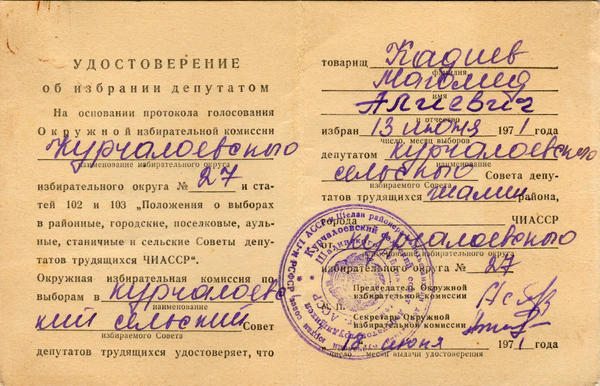 УДОСТОВЕРЕНИЕ
об избрании депутатом
На основании протокола голосования
Окружной избирательной комиссии
Курчалоевского
наименование избирательного округа
избирательного округа № 27 и ста-
тей 102 и 103 „Положения о выборах
в районные, городские, поселковые, ауль-
ные, станичные и сельские Советы депу-
татов трудящихся ЧИАССР“.
Окружная избирательная комиссия по
выборам в Курчалоевс
наименование
кий сельский Совет
избираемого Совета
депутатов трудящихся удостоверяет, что
товарищ Кадиев
фамилия
Магомед
имя
Алиевич
отчество
избран 13 июня 1971 года
число, месяц выборов
депутатом Курчалоевского
наименование
сельского Совета депу-
избираемого Совета
татов трудящихся Шали района,
Города ЧИАССР
от Курчалоевского
избирательного округа № 27
Председатель Окружной
избирательной комиссии
Секретарь Окружной
избирательной комиссии
18 июня 1971 года
число, месяц выдачи удостоверения